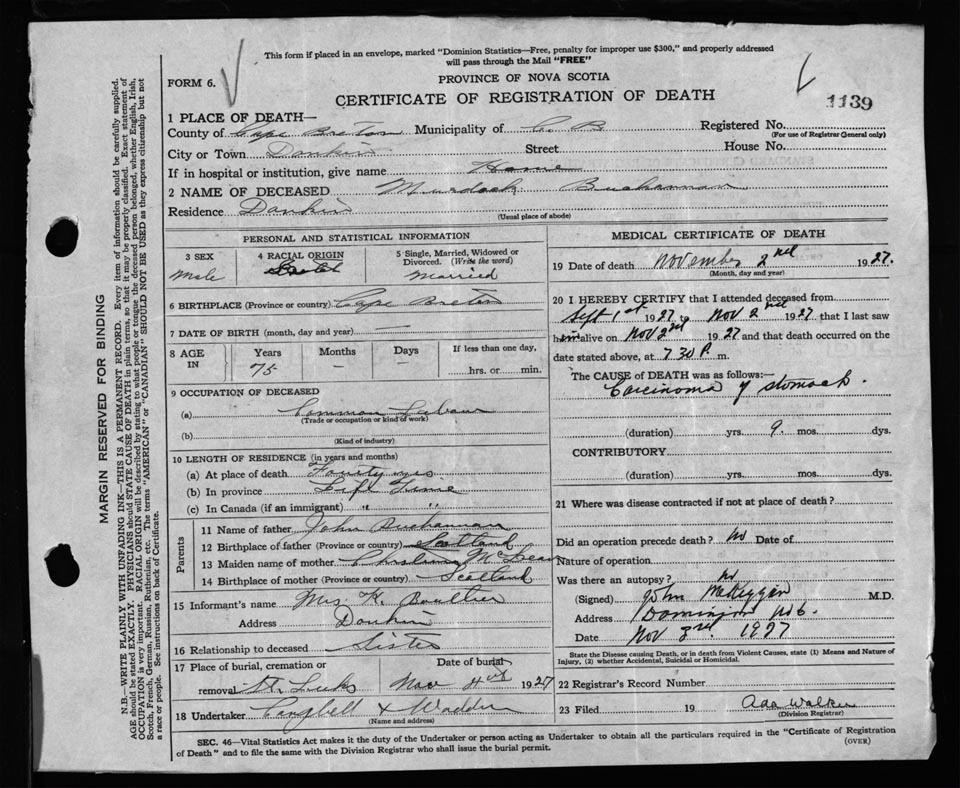 This form if placed in an envelope, marked "Dominion Statistics—Free, penalty for improper use $300," and properly addressed
will pass through the Mail "FREE"
PROVINCE OF NOVA SCOTIA
FORM 6.
CERTIFICATE OF REGISTRATION OF DEATH
1139
1 PLACE OF DEATH—
County of Cape Breton Municipality of C. B Registered No.
(For use of Registrar General only)
City or Town Donkin Street House No.
If in hospital or institution, give name Home
2 NAME OF DECEASED Murdock Buchannan
Residence Donkin
(Usual place of abode)
PERSONAL AND STATISTICAL INFORMATION
3 SEX 4 RACIAL ORIGIN 5 Single, Married, Widowed or Divorced. (Write the word)
Male Scotch Married
6 BIRTHPLACE (Province or country) Cape Breton
7 DATE OF BIRTH (month, day and year) —
8 AGE IN Years Months Days If less than one day,
75 - hrs. or min.
9 OCCUPATION OF DECEASED
(a) Common Labour
(Trade or occupation or kind of work)
(b)
(Kind of industry)
10 LENGTH OF RESIDENCE (in years and months)
(a) At place of death
(b) In province Life Time
(c) In Canada (if an immigrant) " "
Parents
11 Name of father John Buchannan
12 Birthplace of father (Province or country) Scotland
13 Maiden name of mother McLean
14 Birthplace of mother (Province or country) Scotland
15 Informant's name Mrs. K. Boutlier
Address Donkin
16 Relationship to deceased Sister
17 Place of burial, cremation or Date of burial
removal St. Luks Nov 4th 1927
18 Undertaker &
(Name and address)
MEDICAL CERTIFICATE OF DEATH
19 Date of death November 2nd 1927.
(Month, day and year)
20 I HEREBY CERTIFY that I attended deceased from
Sept 1st 1927 to Nov 2nd 1927 that I last saw
him alive on Nov 2nd 1927 and that death occurred on the
date stated above, at 7 30 P. m.
The CAUSE of DEATH was as follows:—
Carcinoma of stomach.
(duration) yrs. 9. mos. dys.
CONTRIBUTORY
(duration) yrs. mos. dys.
21 Where was disease contracted if not at place of death?
Did an operation precede death? no Date of
Nature of operation.
Was there an autopsy? no
(Signed) John McKeggan M.D.
Address Dominion No 6.
Date Nov 3rd. 1927
State the Disease causing Death, or in death from Violent Causes, state (1) Means and Nature of
Injury, (2) whether Accidental, Suicidal or Homicidal.
22 Registrar's Record Number
23 Filed 19 Ada Walker
(Division Registrar)
SEC. 46—Vital Statistics Act makes it the duty of the Undertaker or person acting as Undertaker to obtain all the particulars required in the "Certificate of Registration
of Death" and to file the same with the Division Registrar who shall issue the burial permit. (OVER)
MARGIN RESERVED FOR BINDING
N.B.—WRITE PLAINLY WITH UNFADING INK—THIS IS A PERMANENT RECORD. Every item of information should be carefully supplied.
AGE should be stated EXACTLY. PHYSICIANS should STATE CAUSE OF DEATH in plain terms, so that it may be properly classified. Exact statement of
OCCUPATION is very important. RACIAL ORIGIN will be described by stating to what people or tongue the deceased person belonged, whether English, Irish,
Scotch, French, German, Russian, Ruthenian, etc. The terms "AMERICAN" or "CANADIAN" SHOULD NOT BE USED as they express citizenship but not
a race or people. See instructions on back of Certificate.